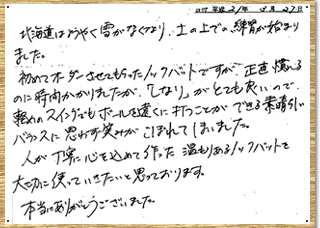 平成21年 4月27日
北海道はようやく雪がなくなり、土の上での練習が始まり
ました。
初めてオーダーさせてもらったノックバットですが、正直慣れる
のに時間かかりましたが、「しなり」がとても良いので、
軽めのスイングでもボールを遠くに打つことができる素晴らしい
バランスに思わず笑みがこぼれてしまいました。
人が丁寧に心を込めて作った温もりあるノックバットを
大切に使っていきたいと思っております。
本当にありがとうございました。